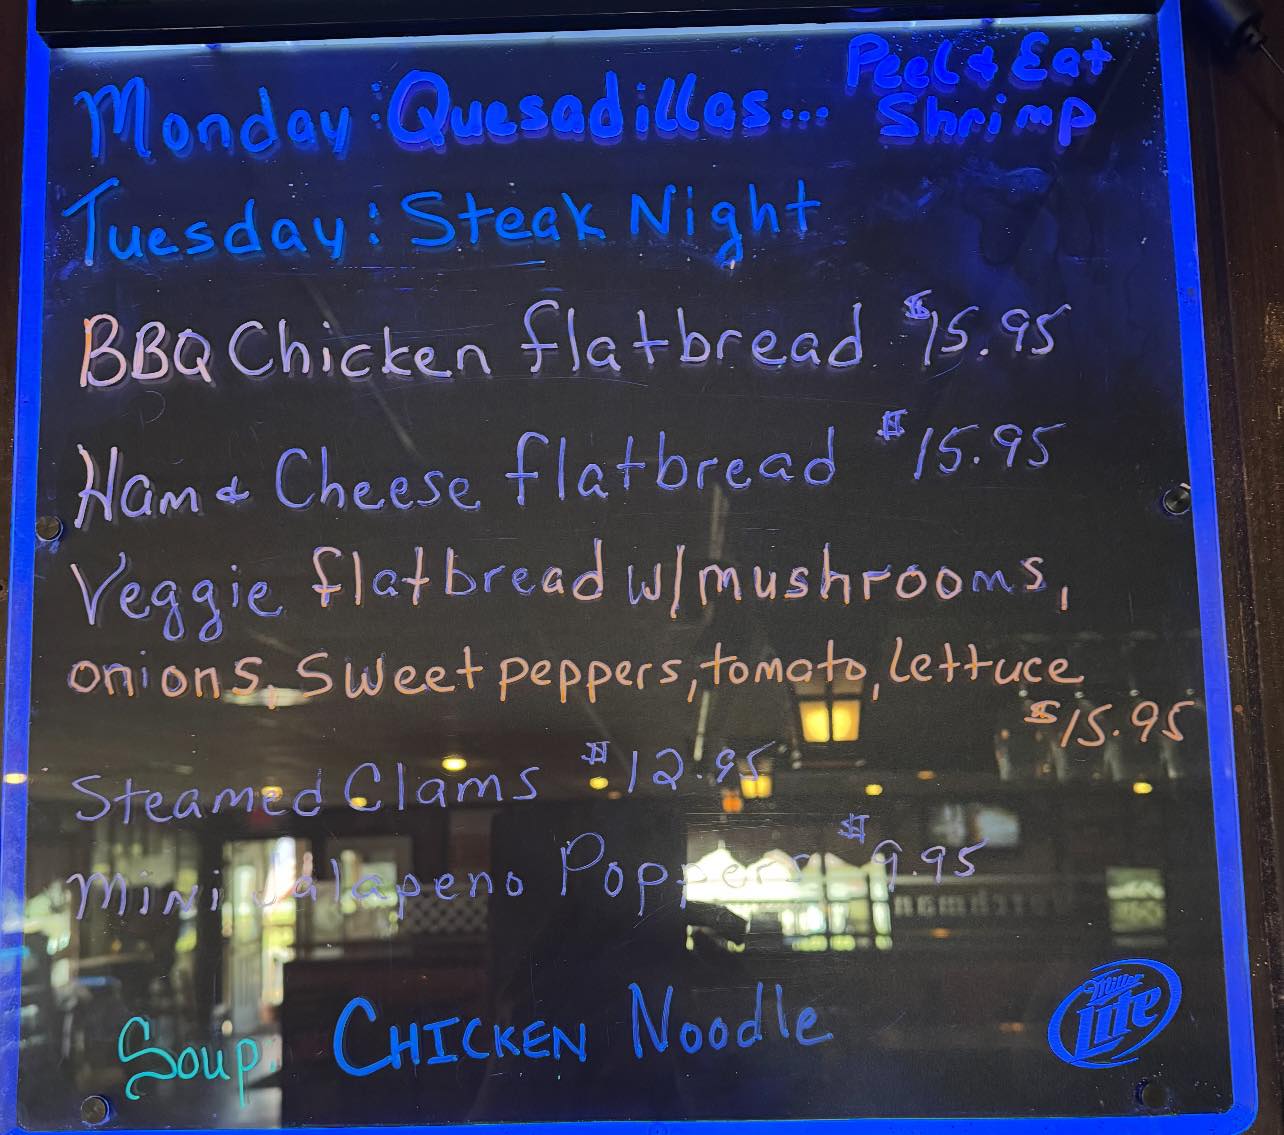 Monday: Quesadillas... Peel & Eat
Shrimp
Tuesday: Steak Night
BBQ Chicken flatbread $15.95
Ham & Cheese flatbread $15.95
Veggie flatbread w/mushrooms,
onions, sweet peppers, tomato, lettuce
$15.95
Steamed Clams $12.95
Mini Jalapeno Poppers $9.95
Soup: CHICKEN Noodle
Miller
Lite